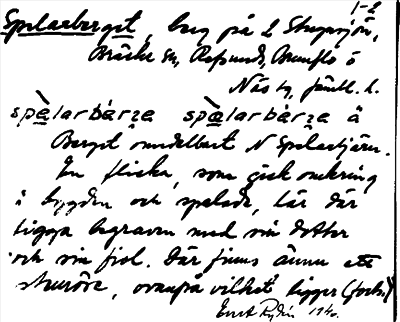 1-2
Spelarberget, berg på L Stugusjön,
Bräcke sn, Refsunds, Brunflo o
Näs tg, Jämtl. l.
spelarbärge spelarbärge å
Berget omedelbart N Spelartjärn.
En flicka, som gick omkring
i bygden och spelade, lär där
ligga begraven med sin dotter
och sin fiol. Där finns ännu ett
stenröse, ovanpå vilket ligger (forts.)
Ernst Rydin 1940.